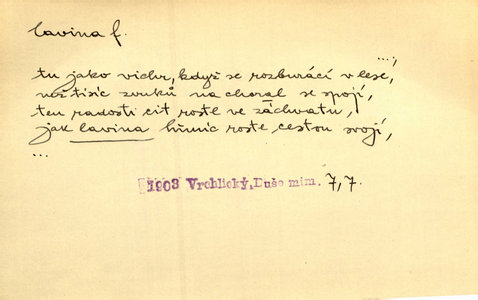 lavina f.
...,
tu jako vichr, když se rozburácí v lese,
než tisíc zvuků na choral se spojí,
ten radosti cit roste ve záchvatu,
jak lavina hřmíc roste cestou svojí,
...
1903 Vrchlický, Duše mim. 7,7.